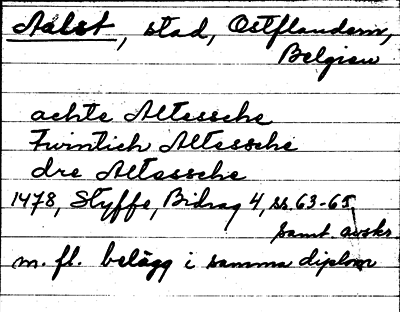 Aalst, stad, Ostflandern,
Belgien
achte Altessche
Twintich Altessche
dre Altessche
1478, Styffe, Bidrag 4, ss. 63-65
samt. avskr.
m. fl. belägg i samma diplom